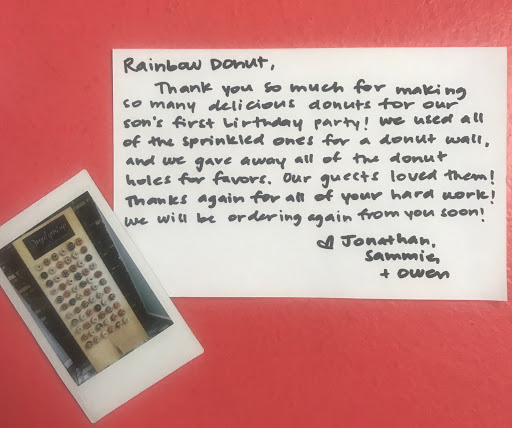 Rainbow Donut,
Thank you so much for making
so many delicious donuts for our
son's first birthday party! We used all
of the sprinkled ones for a donut wall,
and we gave away all of the donut
holes for favors. Our guests loved them!
Thanks again for all of your hard work!
We will be ordering again from you soon!
♡ Jonathan,
Sammie,
+ Owen